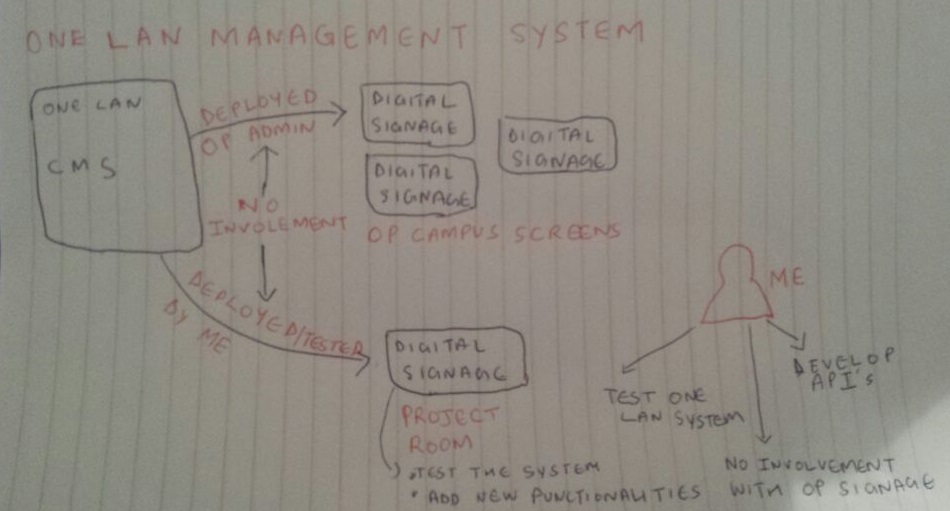 ONE LAN MANAGEMENT SYSTEM
ONE LAN
CMS
DEPLOYED
OP ADMIN
NO
INVOLEMENT
DIGITAL
SIGNAGE
DIGITAL
SIGNAGE
DIGITAL
SIGNAGE
OP CAMPUS SCREENS
DEPLOYED/TESTER
BY ME
DIGITAL
SIGNAGE
PROJECT
ROOM
• TEST THE SYSTEM
• ADD NEW FUNCTIONALITIES
ME
TEST ONE
LAN SYSTEM
DEVELOP
API's
NO INVOLVEMENT
WITH OP SIGNAGE